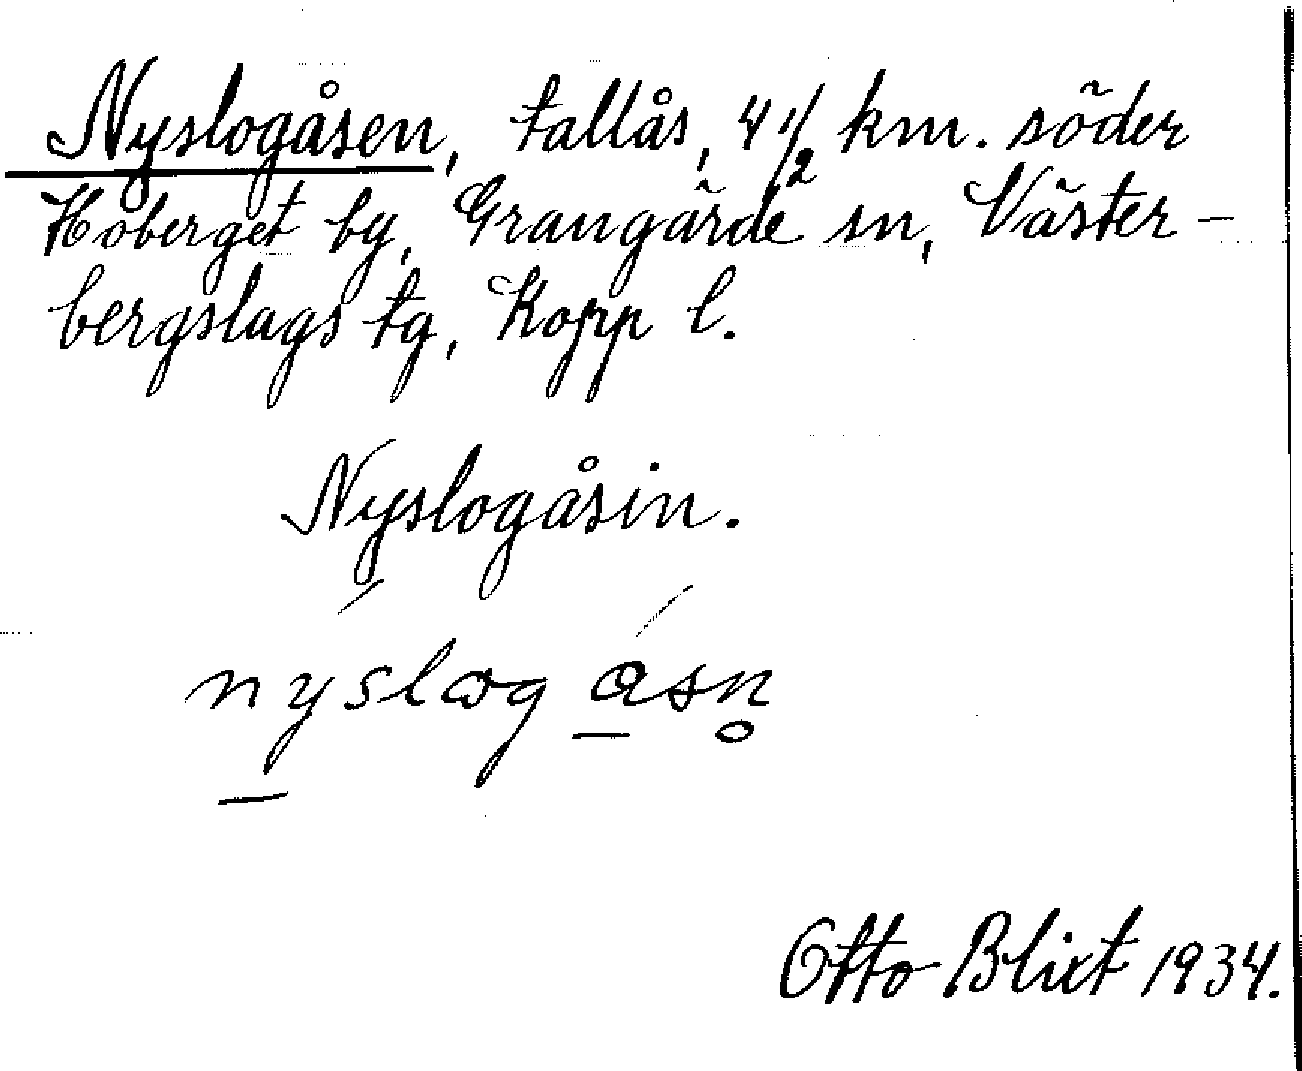 Nyslogåsen, tallås, 4 1/2 km. söder
Höberget by, Grangärde sn, Väster-
bergslags tg, Kopp l.
Nyslogåsin.
nýslog åsn̥
Otto Blixt 1934.